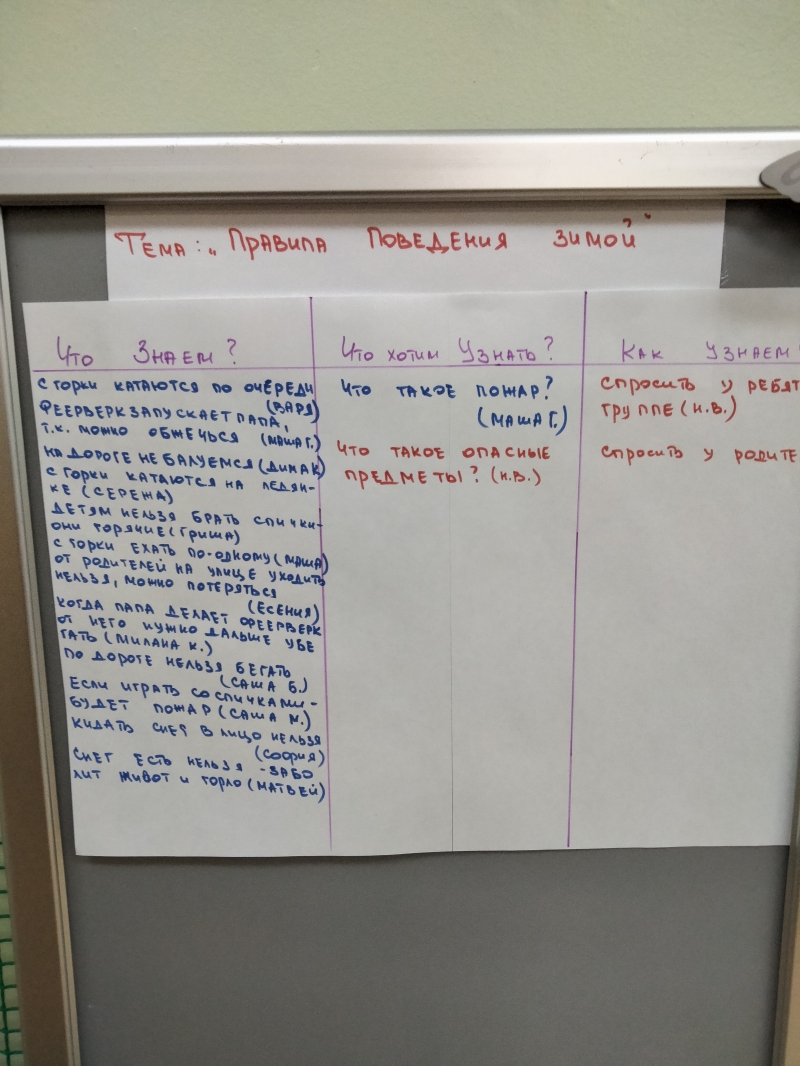 Тема: „Правила поведения зимой"
Что знаем?
С горки катаются по очереди
(Варя)
Феерверк запускает папа,
т.к. можно обжечься (Маша Г.)
На дороге не балуемся (Дима К)
С горки катаются на ледян-
ке (Сережа)
Детям нельзя брать спички-
они горячие (Гриша)
С горки ехать по-одному (Маша)
От родителей на улице уходить
нельзя, можно потеряться
(Есения)
Когда папа делает феерверк
от него нужно дальше убе
гать (Милана К.)
По дороге нельзя бегать
(Саша Б.)
Если играть со спичками-
будет пожар (Саша М.)
Кидать снег в лицо нельзя
(София)
Снег есть нельзя - забо
лит живот и горло (Матвей)
Что хотим узнать?
Что такое пожар?
(Маша Г.)
Что такое опасные
предметы? (Н.В.)
Как узнаем?
Спросить у ребят
группе (Н.В.)
Спросить у родите